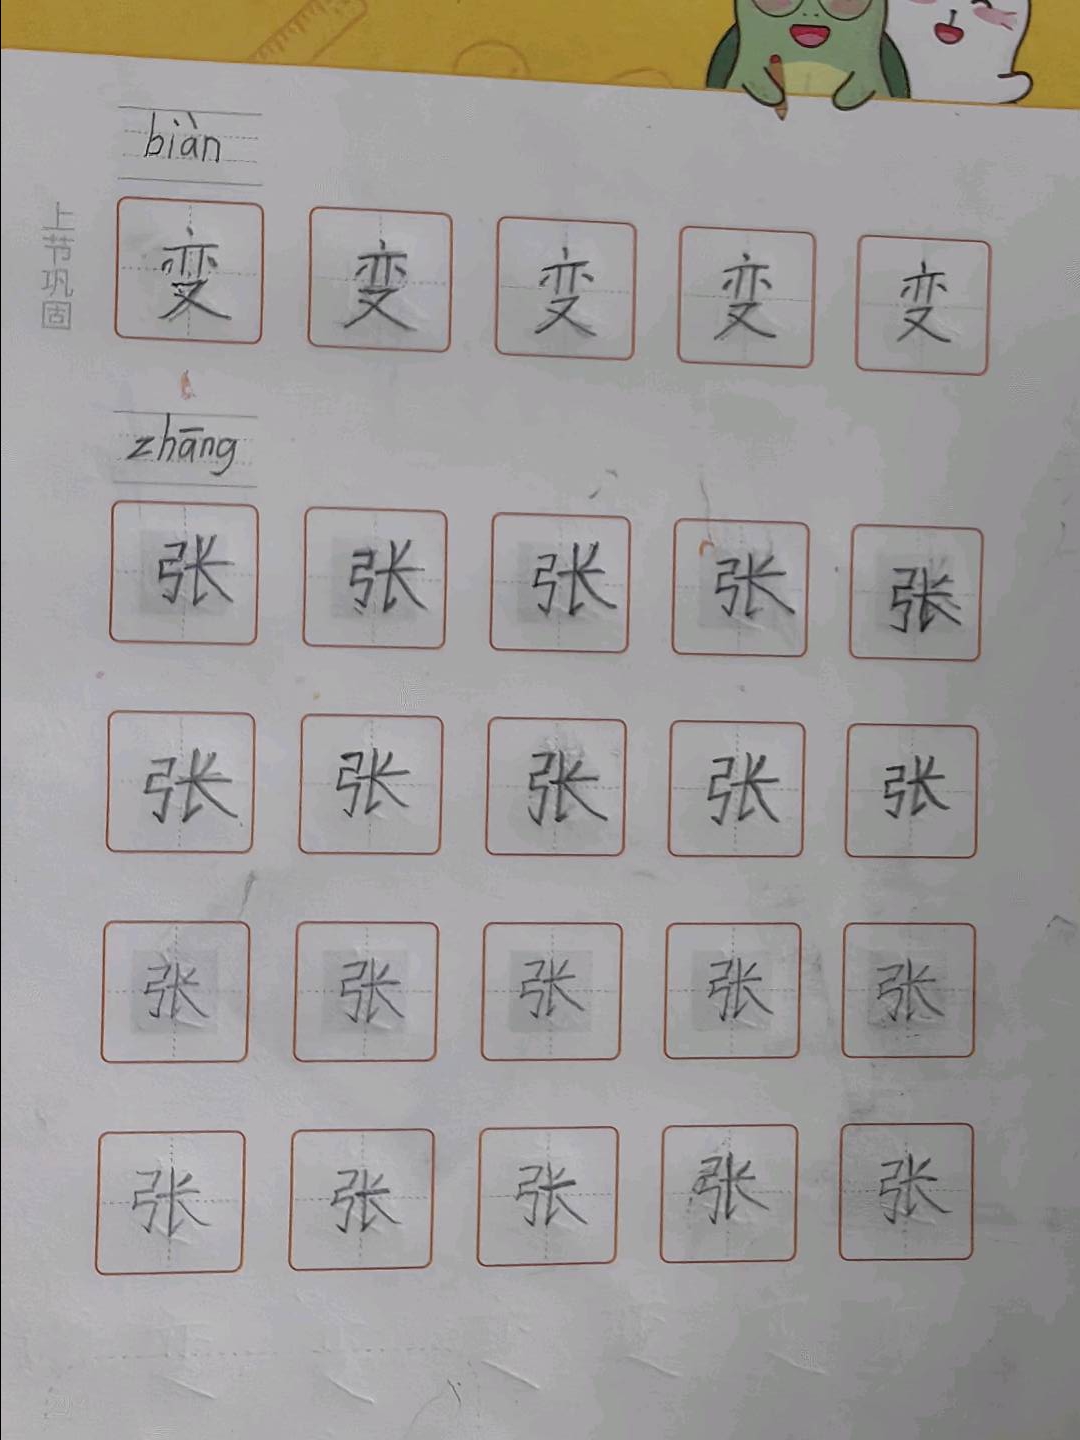 biàn
上节巩固
变 变 变 变 变
zhāng
张 张 张 张 张
张 张 张 张 张
张 张 张 张 张
张 张 张 张 张